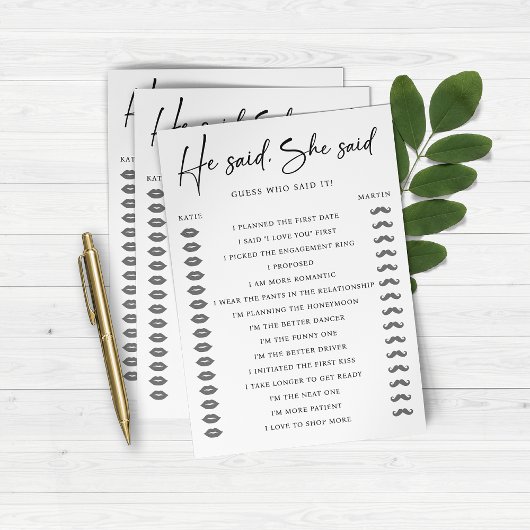 He said, She said
GUESS WHO SAID IT!
KATIE MARTIN
I PLANNED THE FIRST DATE
I SAID "I LOVE YOU" FIRST
I PICKED THE ENGAGEMENT RING
I PROPOSED
I AM MORE ROMANTIC
I WEAR THE PANTS IN THE RELATIONSHIP
I'M PLANNING THE HONEYMOON
I'M THE BETTER DANCER
I'M THE FUNNY ONE
I'M THE BETTER DRIVER
I INITIATED THE FIRST KISS
I TAKE LONGER TO GET READY
I'M THE NEAT ONE
I'M MORE PATIENT
I LOVE TO SHOP MORE